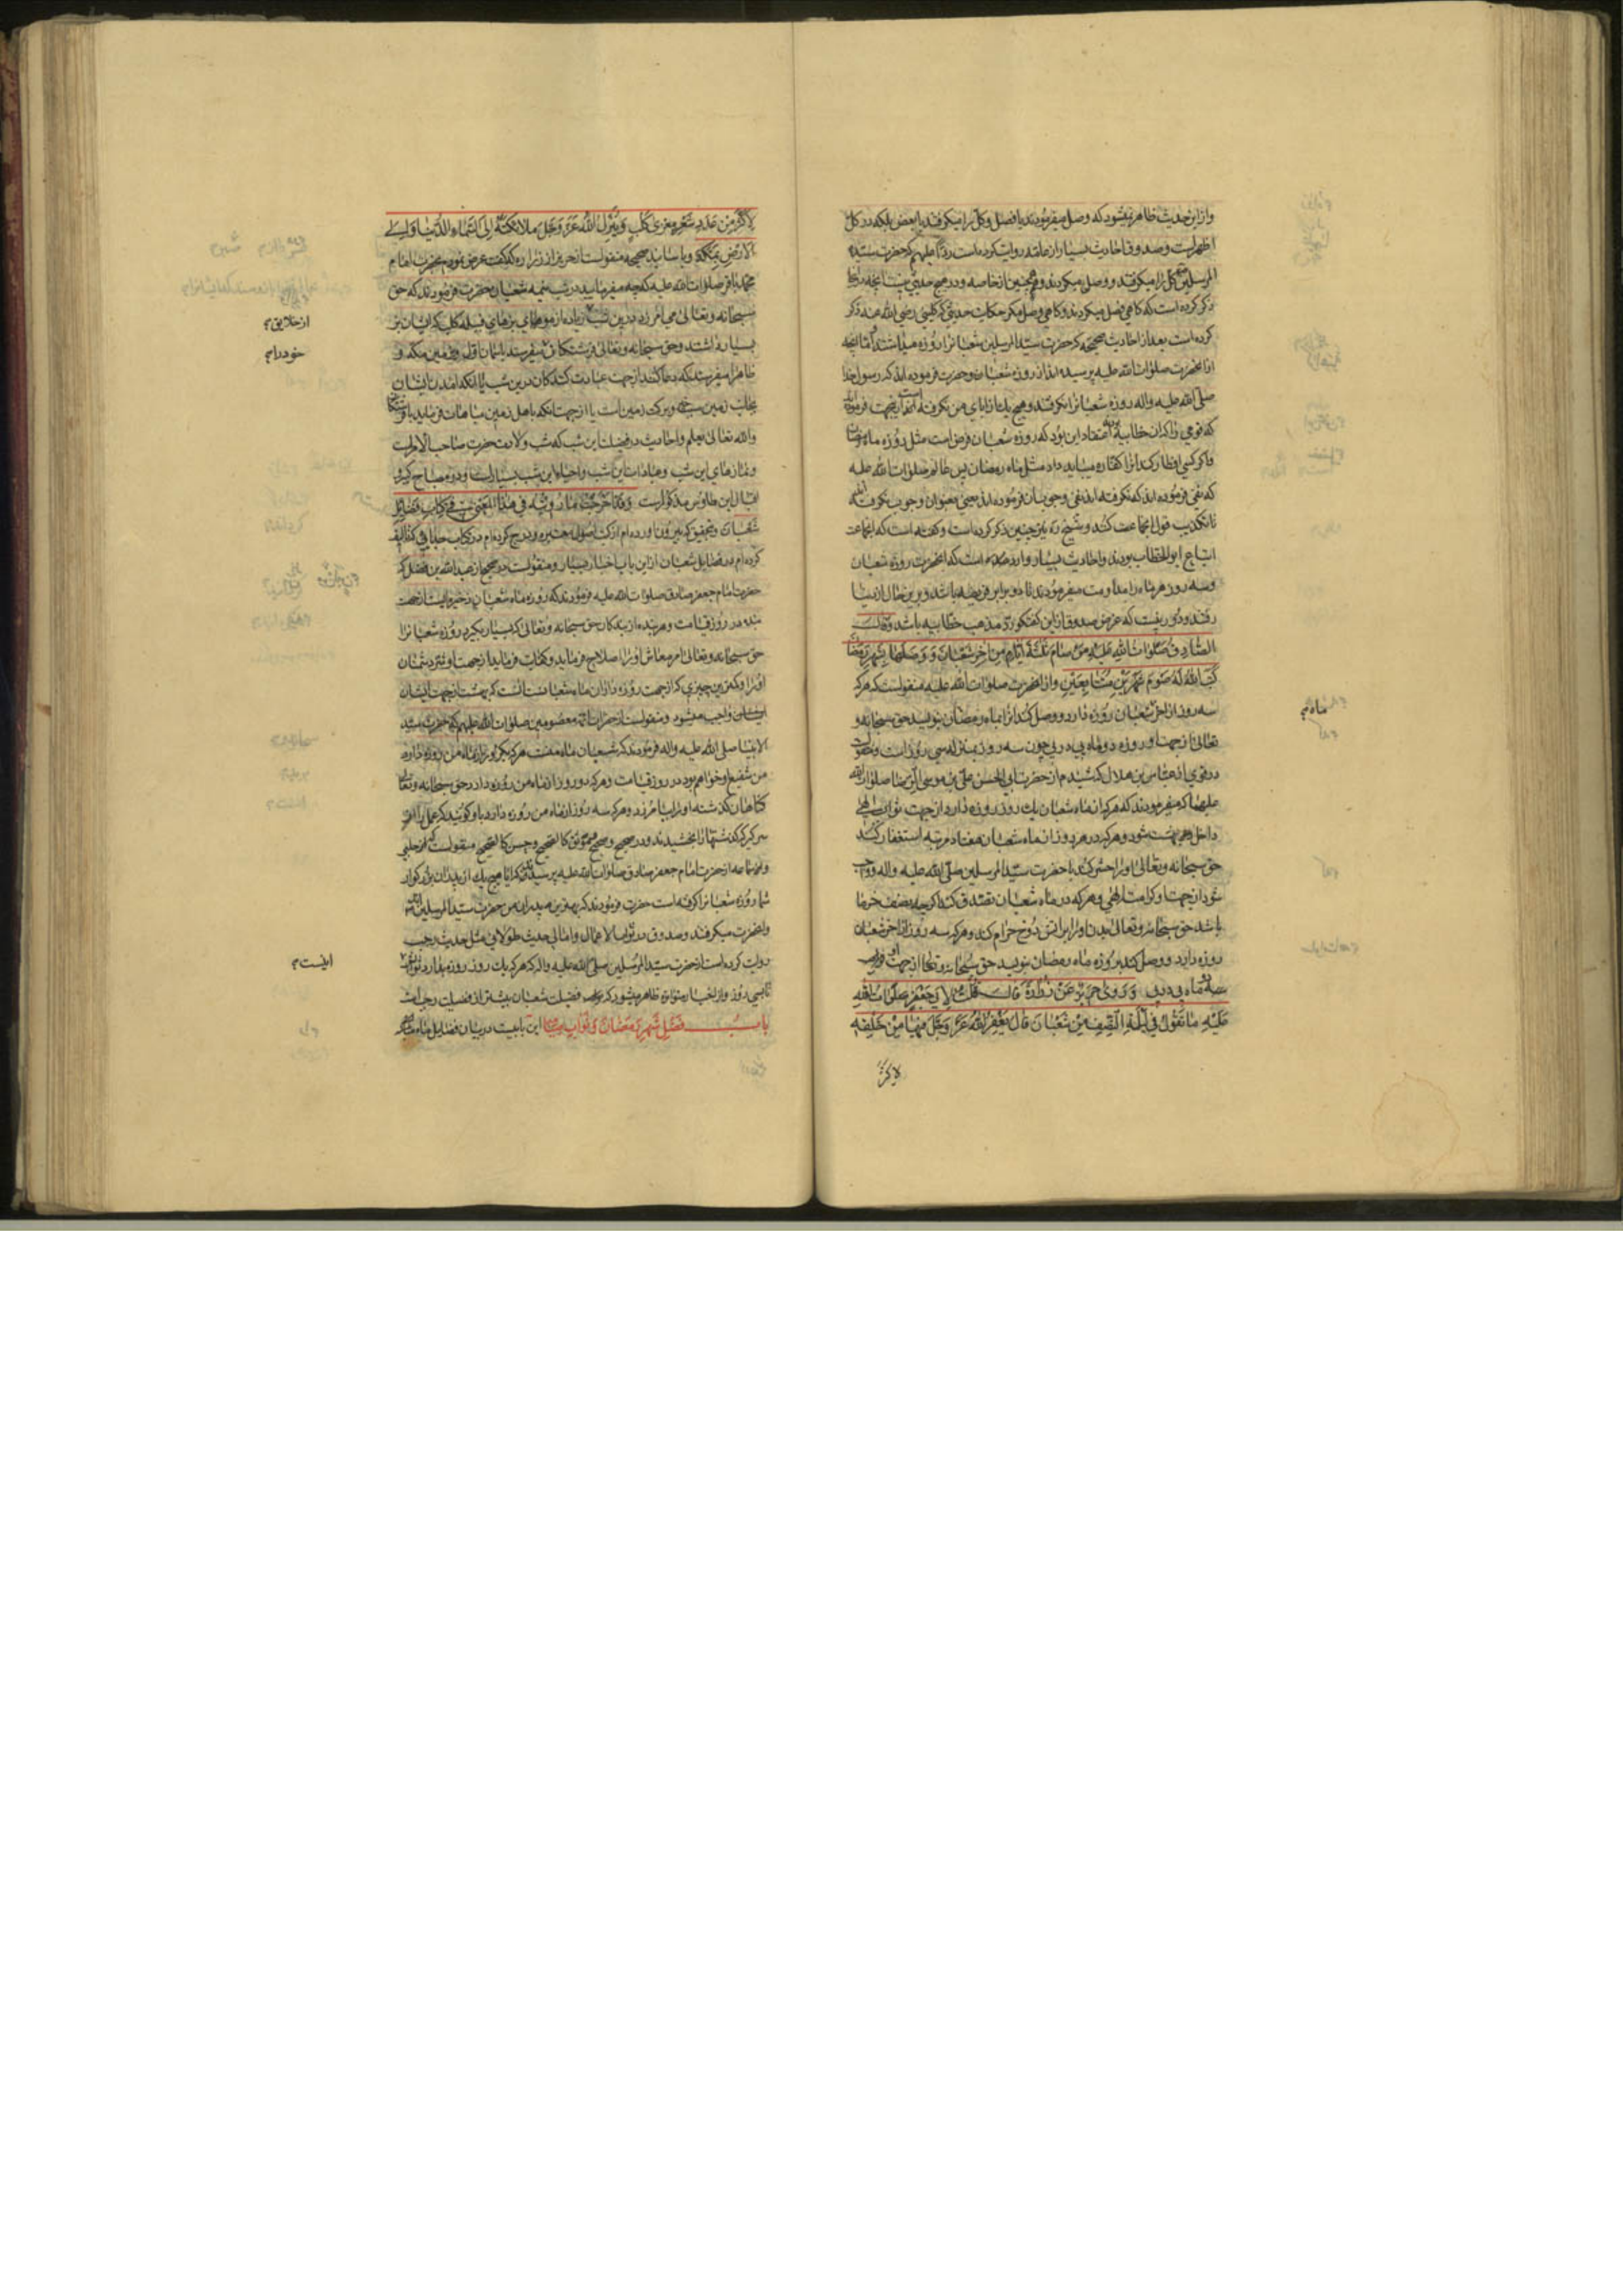 وازاین حدیث ظاهر میشود که وصل میفرمودند یا فصل وکل را میکرفتند یا بعض بلکه در کل
اظهرست وصدوق احادیث بسیار از عامه روایت کرده است رداً علیهم که حضرت سید
المرسلین کل را میکرفتند و وصل میکردند وهمچنین از خاصه ودر هیچ حدیثی نیست انچه در اینجا
ذکر کرده است که کاهی فصل میکردند وکاهی وصل مکر حکایت حدیثی که کلینی رضی الله عنه ذکر
کرده است بعد از احادیث صحیحه که حضرت سید المرسلین شعبانرا روزه میداشتند اما انچه
از انحضرت صلوات الله علیه پرسیده اند از روزه شعبان وحضرت فرموده اند که رسول خدا
صلی الله علیه واله روزه شعبانرا نکرفتند وهیچ یک از ابای من نکرفته اند از اینجهت فرموده
که قومی زاکران خطابیه اعتقاد این بود که روزه شعبان فرض است مثل روزه ماه رمضان
واکر کسی افطار کند انرا کفاره میباید داد مثل ماه رمضان پس عالم صلوات الله علیه
که نفی فرموده اند که نکرفته اند نفی وجوبست فرموده اند یعنی بعنوان وجوب نکرفته
تا تکذیب قول انجماعت کنند وشیخ ره نیز چنین ذکر کرده است وکفته است که انجماعت
اتباع ابو الخطاب بودند واحادیث بسیار وارد شده است که انحضرت روزه شعبان
وسه روز هر ماه را مداومت میفرمودند تا دو برابر فریضه باشد وبرین حال از دنیا
رفتند ودور نیست که غرض صدوق از این کفتکو رد مذهب خطابیه باشد وقال
الصادق صلوات الله علیه من صام ثلثة ایام من اخر شعبان و وصلها بشهر رمضان
کتب الله له صوم شهرین متتابعین وازانحضرت صلوات الله علیه منقولست که هرکه
سه روز از اخر شعبان روزه دارد و وصل کند انرا بماه رمضان بنویسد حق سبحانه و
تعالی از جهت او روزه دو ماه پی در پی چون سه روز بمنزله سی روز است
در قوی از عباس بن هلال که شنیدم از حضرت ابی الحسن علی بن موسی الرضا صلوات الله
علیهما که میفرمودند که هرکه از ماه شعبان یک روز روزه دارد از جهت ثواب الهی
داخل بهشت شود وهرکه در هر روز از ماه شعبان هفتاد مرتبه استغفار کند
حق سبحانه وتعالی اورا حشر کند با حضرت سید المرسلین صلی الله علیه واله وواجب
شود از جهت او کرامت الهی وهرکه در ماه شعبان تصدق کند اکرچه بنصف خرما
باشد حق سبحانه وتعالی بدن اورا بر اتش دوزخ حرام کند وهرکه سه روز از اخر شعبان
روزه دارد و وصل کند بروزه ماه رمضان بنویسد حق سبحانه وتعالی از جهت او ثواب
روزه دو ماه پی در پی وروی حریز عن زرارة قال قلت لابی جعفر صلوات الله
علیه ما تقول فی لیلة النصف من شعبان قال یغفر الله عز وجل فیها من خلقه
لاکثر
ماه
لاکثر من عدد شعر معزی کلب وینزل الله عز وجل ملائکته الی السماء الدنیا والی
الارض بمکة وباسانید صحیحه منقولست از حریز از زراره که کفت عرض نمودم بحضرت امام
محمد باقر صلوات الله علیه که چه میفرمایید در شب نیمه شعبان حضرت فرمودند که حق
سبحانه وتعالی می امرزد درین شب زیاده از موهای بزهای قبیله کلب که ایشان بز
بسیار داشتند وحق سبحانه وتعالی فرشتکان میفرستد باسمان اول وزمین مکه و
ظاهرا میفرستد که دعا کنند از جهت عبادت کنندکان درین شب یا انکه امدن ایشان
بجانب زمین سبب برکت زمین است یا از جهت انکه باهل زمین مباهات فرماید با فرشتکان
والله تعالی یعلم واحادیث در فضیلت این شب که شب ولادت حضرت صاحب الامرست
ونمازهای این شب وعبادات این شب واحیاء این شب بسیارست ودر مصباح کبیر و
اقبال ابن طاوس مذکورست وقد اخرجت ما رویته فی هذا المعنی فی کتاب فضایل
شعبان وبتحقیق که بیرون اورده ام از کتب اصول معتبره ودرج کرده ام در کتاب علیحده که تالیف
کرده ام در فضایل شعبان از این باب اخبار بسیار ومنقولست در صحیح از عبد الله بن فضل که
حضرت امام جعفر صادق صلوات الله علیه فرمودند که روزه ماه شعبان ذخیره ایست از جهت
بنده در روز قیامت وهر بنده از بندکان حق سبحانه وتعالی که بسیار بکیرد روزه شعبانرا
حق سبحانه وتعالی امر معاش اورا اصلاح فرماید وکفایت فرماید از جهت او شر دشمنان
اورا وکمترین چیزی که از جهت روزه داران ماه شعبانست انست که بهشت از جهت ایشان
واجب میشود ومنقولست از حضرات ائمه معصومین صلوات الله علیهم که حضرت سید
الانبیا صلی الله علیه واله فرمودند که شعبان ماه منست هرکه یکروز از ماه من روزه دارد
من شفیع او خواهم بود در روز قیامت وهرکه دو روز از ماه من روزه دارد حق سبحانه وتعالی
کناهان کذشته اورا بیامرزد وهرکه سه روز از ماه من روزه دارد باو کویند که عمل را از
سر کیر که کذشتها را بخشیدند ودر صحیح وصحیح وموثق کالصحیح وحسن کالصحیح منقولست از حلبی
وازسماعه از حضرت امام جعفر صادق صلوات الله علیه پرسیدند که ایا هیچ یک از پدران بزرکوار
شما روزه شعبانرا کرفته است حضرت فرمودند که بهترین پدران من حضرت سید المرسلین
وانحضرت میکرفتند وصدوق در ثواب الاعمال وامالی حدیث طولانی مثل حدیث رجب
روایت کرده است از حضرت سید المرسلین صلی الله علیه واله که هرکه یک روز روزه بدارد ثواب
تا سی روز وازاخبار متواتره ظاهر میشود که فضیلت شعبان بیشتر از فضیلت رجبست
باب فضل شهر رمضان وثواب صیامه این بابیست در بیان فضایل ماه مبارک
از خلایق
خود را
اینست